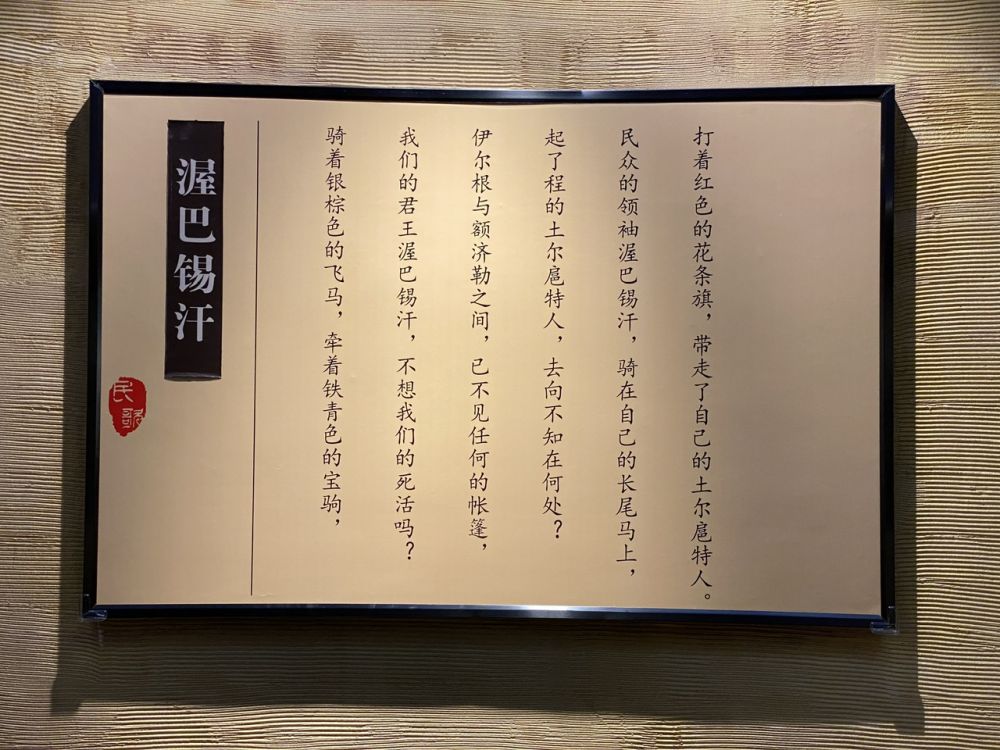 渥巴锡汗
民歌
骑着银棕色的飞马，牵着铁青色的宝驹，
我们的君王渥巴锡汗，不想我们的死活吗？
伊尔根与额济勒之间，已不见任何的帐篷，
起了程的土尔扈特人，去向不知在何处？
民众的领袖渥巴锡汗，骑在自己的长尾马上，
打着红色的花条旗，带走了自己的土尔扈特人。